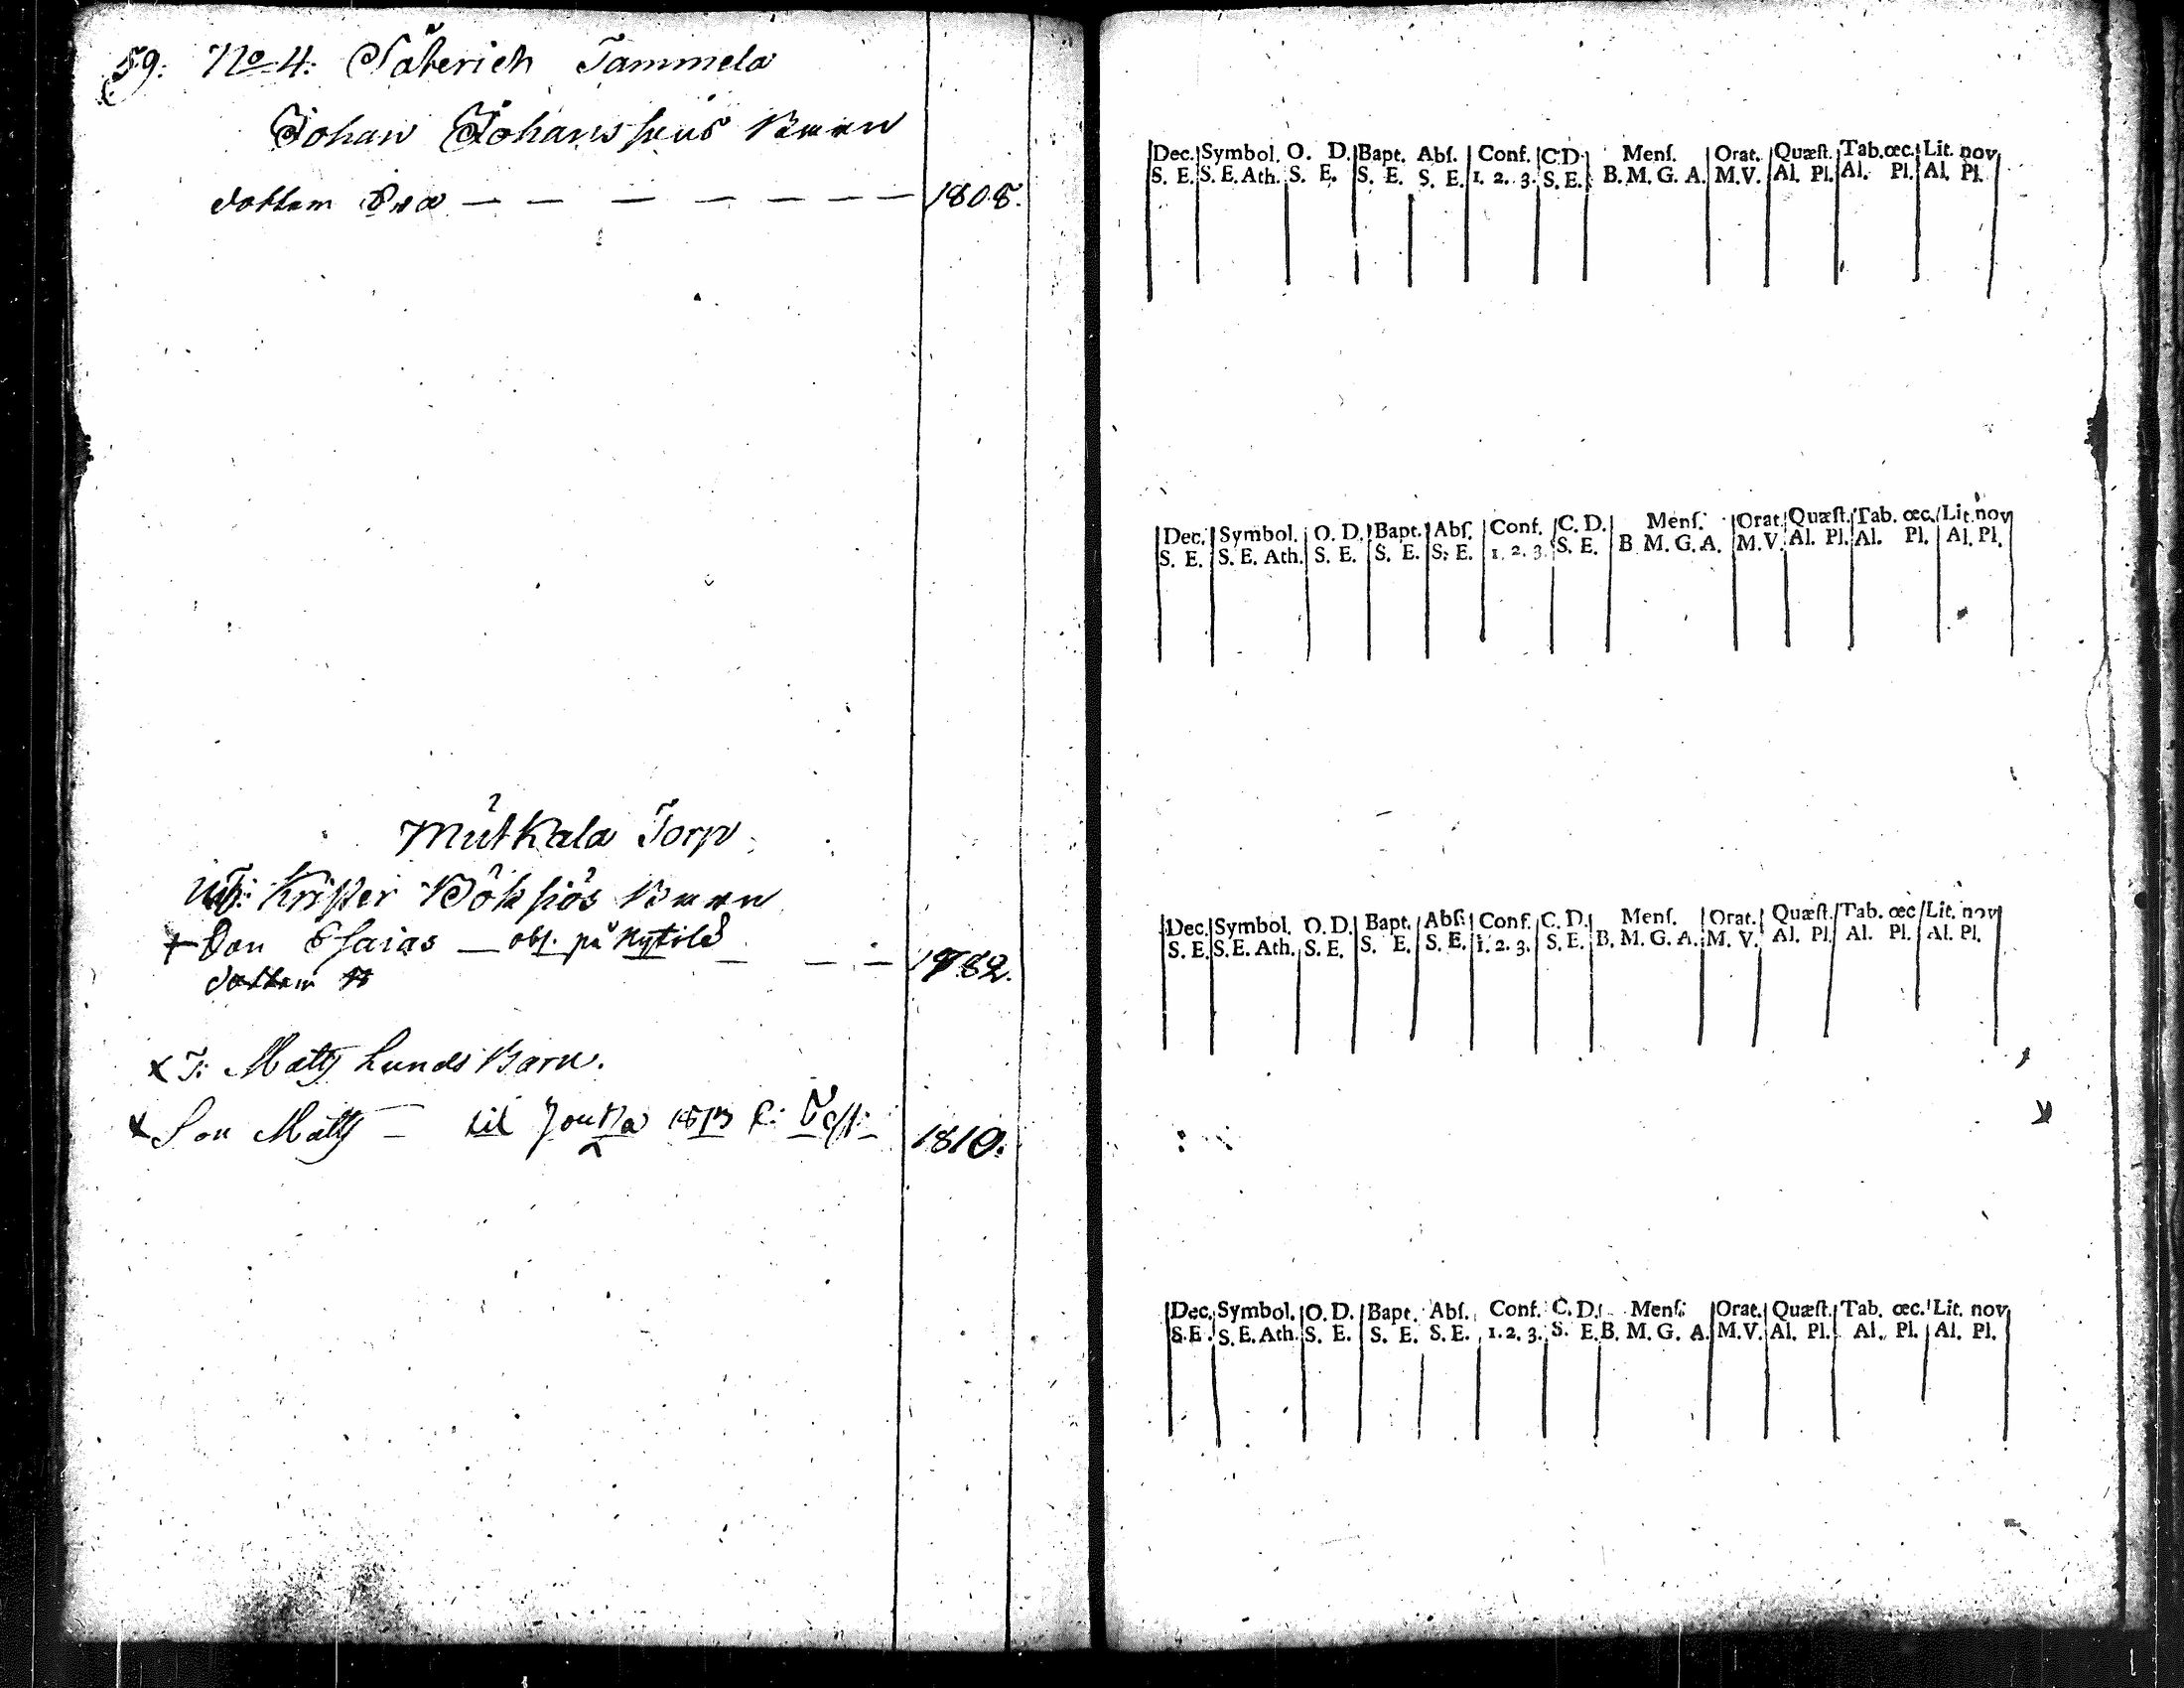 59: No 4: Säterich Tammela
Johan Johanssons Barn
dottern Eva — — — — — — — 1808.
Mutkala Torp
Krister Böksiös Barn
+ Son Esaias — obs. på — — — 1782.
dottern
x T: Matts Lunds Barn.
x Son Matts — til 1810.
Dec. Symbol. O. D. Bapt. Abſ. Conf. C.D. Menſ. Orat. Quæſt. Tab. œc. Lit. nov
S. E. S. E. Ath. S. E. S. E. S. E. 1. 2. 3. S. E. B. M. G. A. M.V. Al. Pl. Al. Pl. Al. Pl.
Dec. Symbol. O. D. Bapt. Abſ. Conf. C. D. Menſ. Orat. Quæſt. Tab. œc. Lit. nov
S. E. S. E. Ath. S. E. S. E. S. E. 1. 2. 3. S. E. B M. G. A. M.V. Al. Pl. Al. Pl. Al. Pl.
Dec. Symbol. O. D. Bapt. Abſ. Conf. C. D. Menſ. Orat. Quæſt. Tab. œc Lit. nov
S. E. S. E. Ath. S. E. S. E. S. E. 1. 2. 3. S. E. B. M. G. A. M. V. Al. Pl. Al. Pl. Al. Pl.
Dec. Symbol. O. D. Bapt. Abſ. Conf. C. D. Menſ. Orat. Quæſt. Tab. œc. Lit. nov
S. E. S. E. Ath. S. E. S. E. S. E. 1. 2. 3. S. E. B. M. G. A. M.V. Al. Pl. Al. Pl. Al. Pl.